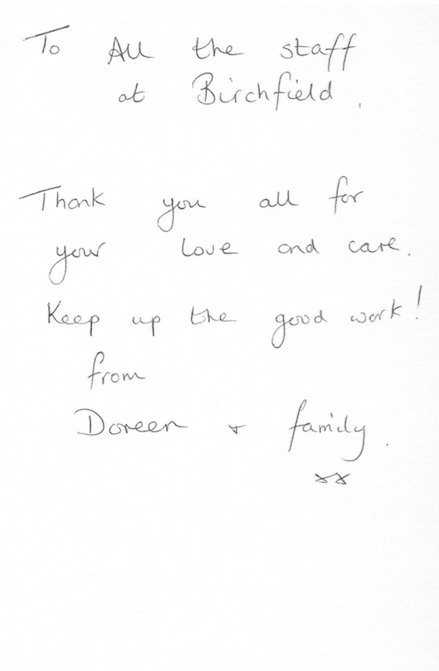 To All the staff
at Birchfield.
Thank you all for
your love and care.
Keep up the good work!
from
Doreen + family.
xx